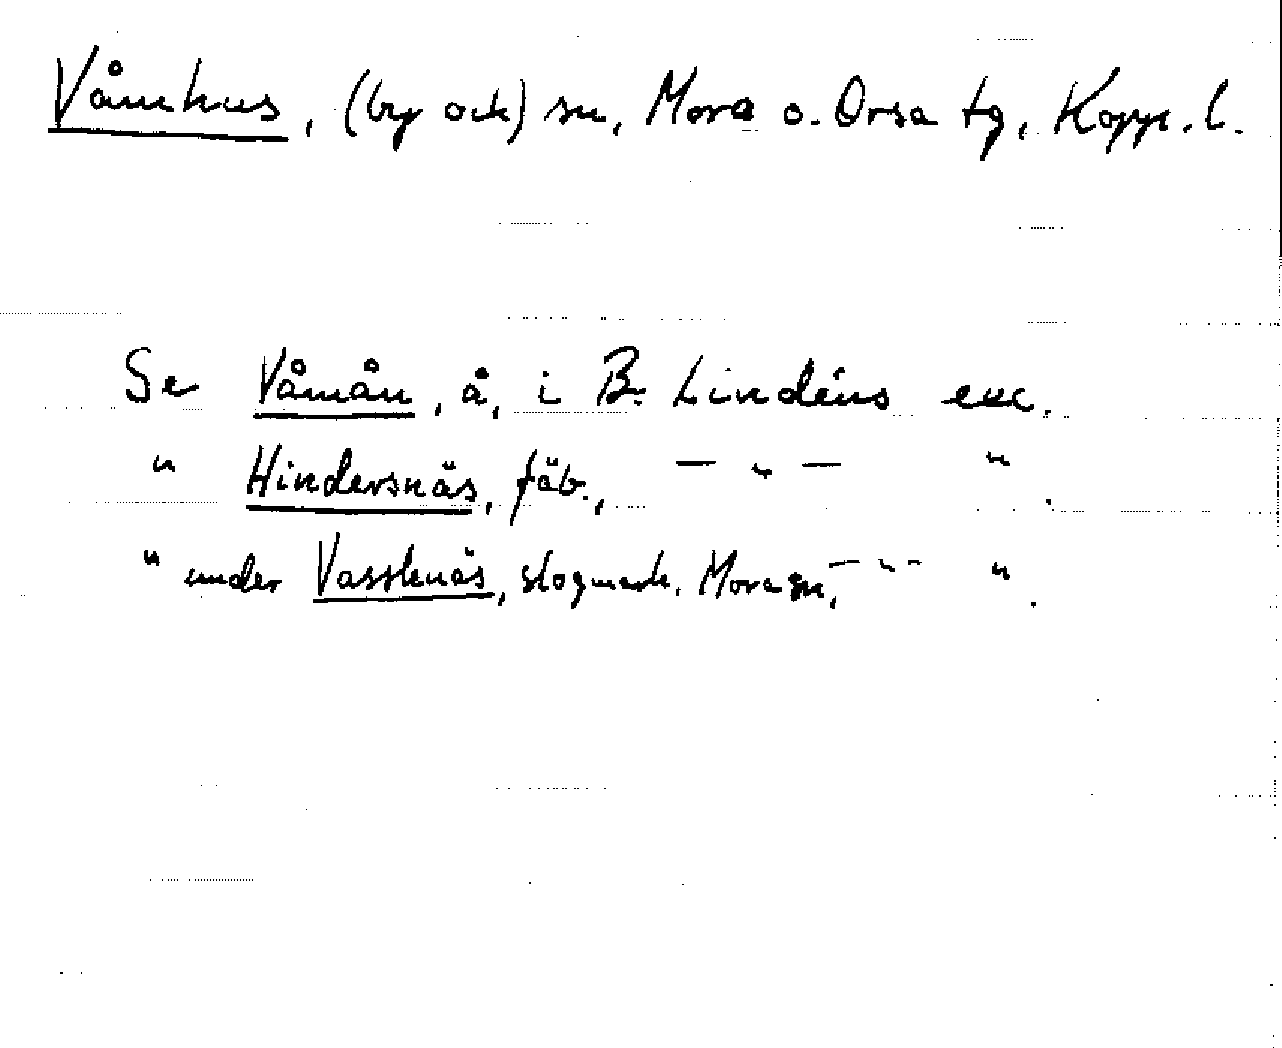 Våmhus, (by och) sn, Mora o. Orsa tg, Kopp. l.
Se Våmån, å, i B. Lindéns exc.
" Hindersnäs, fäb., — " — " .
" under Vasslenäs, slogmark, Mora sn, — " — " .